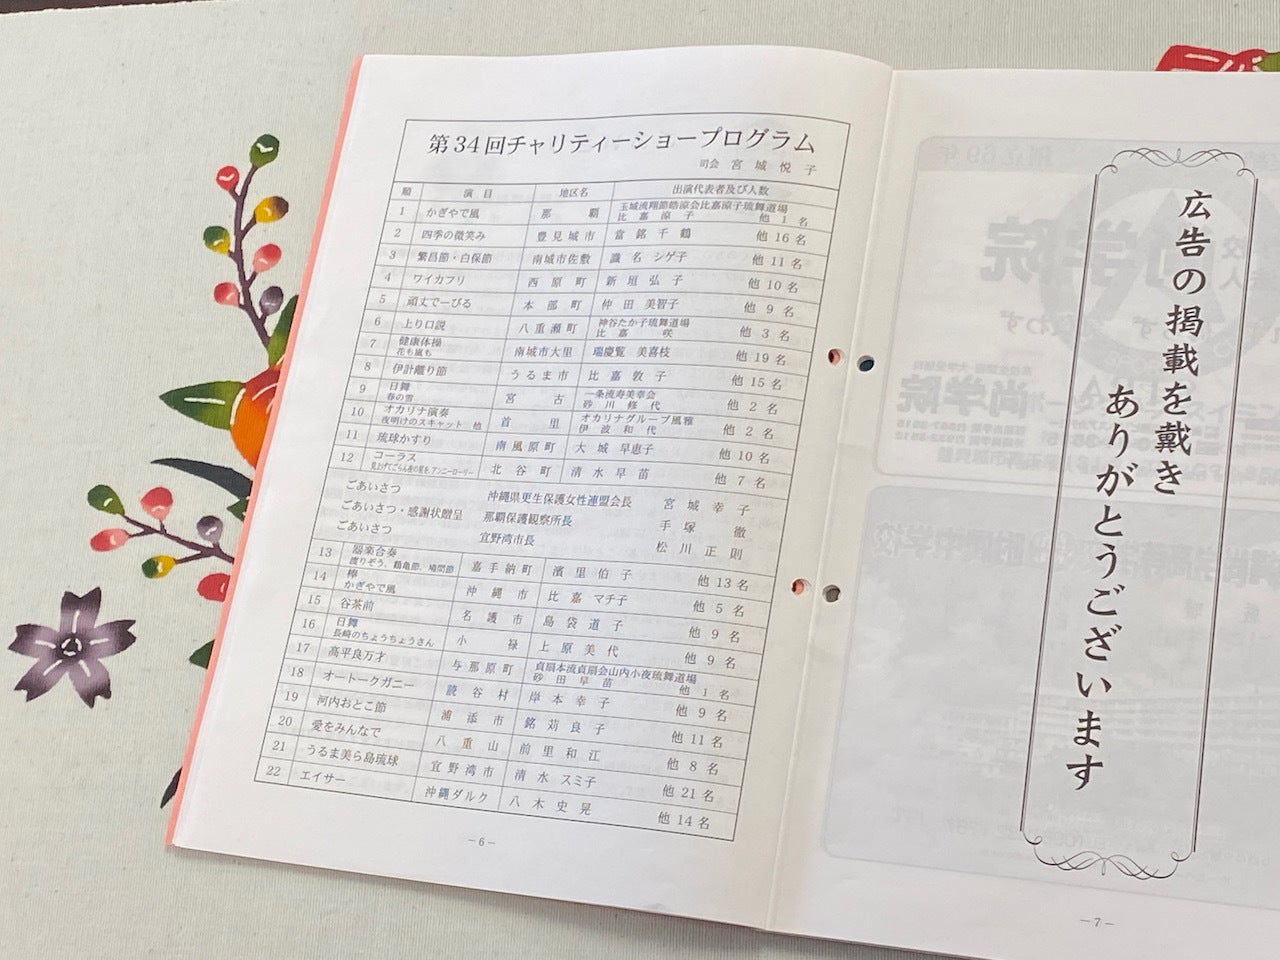 第34回チャリティーショープログラム
司会 宮城悦子
順 演目 地区名 出演代表者及び人数
1 かぎやで風 那覇 玉城流翔節皓涼会比嘉涼子琉舞道場
比嘉涼子 他1名
2 四季の微笑み 豊見城市 當銘千鶴 他16名
3 繁昌節・白保節 南城市佐敷 識名シゲ子 他11名
4 ワイカフリ 西原町 新垣弘子 他10名
5 頑丈でーびる 本部町 仲田美智子 他9名
6 上り口説 八重瀬町 神谷たか子琉舞道場
比嘉咲 他3名
7 健康体操
花も嵐も 南城市大里 瑞慶覧美喜枝 他19名
8 伊計離り節 うるま市 比嘉敦子 他15名
9 日舞
春の雪 宮古 一条流寿美幸会
砂川修代 他2名
10 オカリナ演奏
夜明けのスキャット 他 首里 オカリナグループ風雅
伊波和代 他2名
11 琉球かすり 南風原町 大城早恵子 他10名
12 コーラス
見上げてごらん夜の星を、アンニーローリー 北谷町 清水早苗 他7名
ごあいさつ 沖縄県更生保護女性連盟会長 宮城幸子
ごあいさつ・感謝状贈呈 那覇保護観察所長 手塚徹
ごあいさつ 宜野湾市長 松川正則
13 器楽合奏
渡りぞう、鶴亀節、鳩間節 嘉手納町 濱里伯子 他13名
14 棒
かぎやで風 沖縄市 比嘉マチ子 他5名
15 谷茶前 名護市 島袋道子 他9名
16 日舞
長崎のちょうちょうさん 小禄 上原美代 他9名
17 高平良万才 与那原町 貞扇本流貞扇会山内小夜琉舞道場
砂田早苗 他1名
18 オートークガニー 読谷村 岸本幸子 他9名
19 河内おとこ節 浦添市 銘苅良子 他11名
20 愛をみんなで 八重山 前里和江 他8名
21 うるま美ら島琉球 宜野湾市 清水スミ子 他21名
22 エイサー 沖縄ダルク 八木史晃 他14名
－6－
広告の掲載を戴き
ありがとうございます
－7－